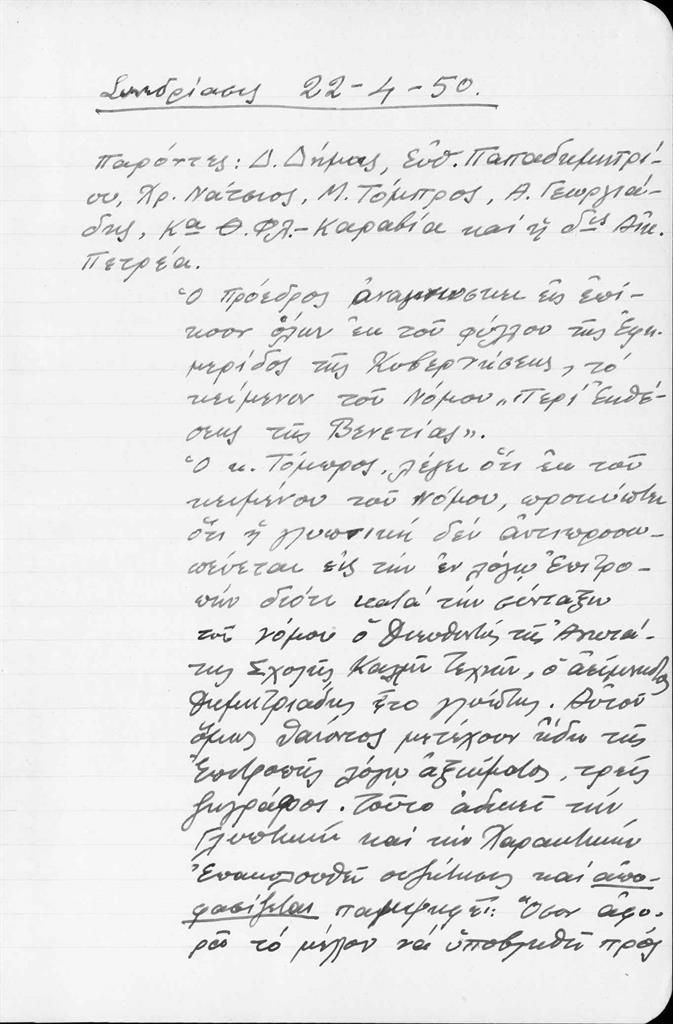 Συνεδρίασις 22-4-50.
Παρόντες: Δ. Δήμας, Εὐθ. Παπαδημητρί-
ου, Χρ. Νάτσιος, Μ. Τόμπρος, Α. Γεωργιά-
δης, Κα Θ. Φλ.-Καραβία καὶ ἡ δὶς Ἀικ.
Πετρέα.
Ὁ πρόεδρος ἀναγινώσκει εἰς ἐπή-
κοον ὅλων ἐκ τοῦ φύλλου τῆς Ἐφη-
μερίδος τῆς Κυβερνήσεως, τὸ
κείμενον τοῦ Νόμου „Περὶ Ἐκθέ-
σεως τῆς Βενετίας".
Ὁ κ. Τόμπρος, λέγει ὅτι ἐκ τοῦ
κειμένου τοῦ νόμου, προκύπτει
ὅτι ἡ γλυπτικὴ δὲν ἀντιπροσω-
πεύεται εἰς τὴν ἐν λόγῳ Ἐπιτρο-
πὴν διότι κατὰ τὴν σύνταξιν
τοῦ νόμου ὁ Διευθυντὴς τῆς Ἀνωτά-
της Σχολῆς Καλῶν Τεχνῶν, ὁ ἀείμνηστος
Δημητριάδης ἦτο γλύπτης. Αὐτοῦ
ὅμως θανόντος μετέχουν ἤδη τῆς
Ἐπιτροπῆς λόγῳ ἀξιώματος, τρεῖς
ζωγράφος. Τοῦτο ἀδικεῖ τὴν
Γλυπτικὴν καὶ τὴν Χαρακτικὴν
Ἐπακολουθεῖ συζήτησις καὶ ἀπο-
φασίζεται παμψηφεί: Ὅσον ἀφο-
ρᾶ τὸ μέλλον νὰ ὑποβληθῆ πρὸς